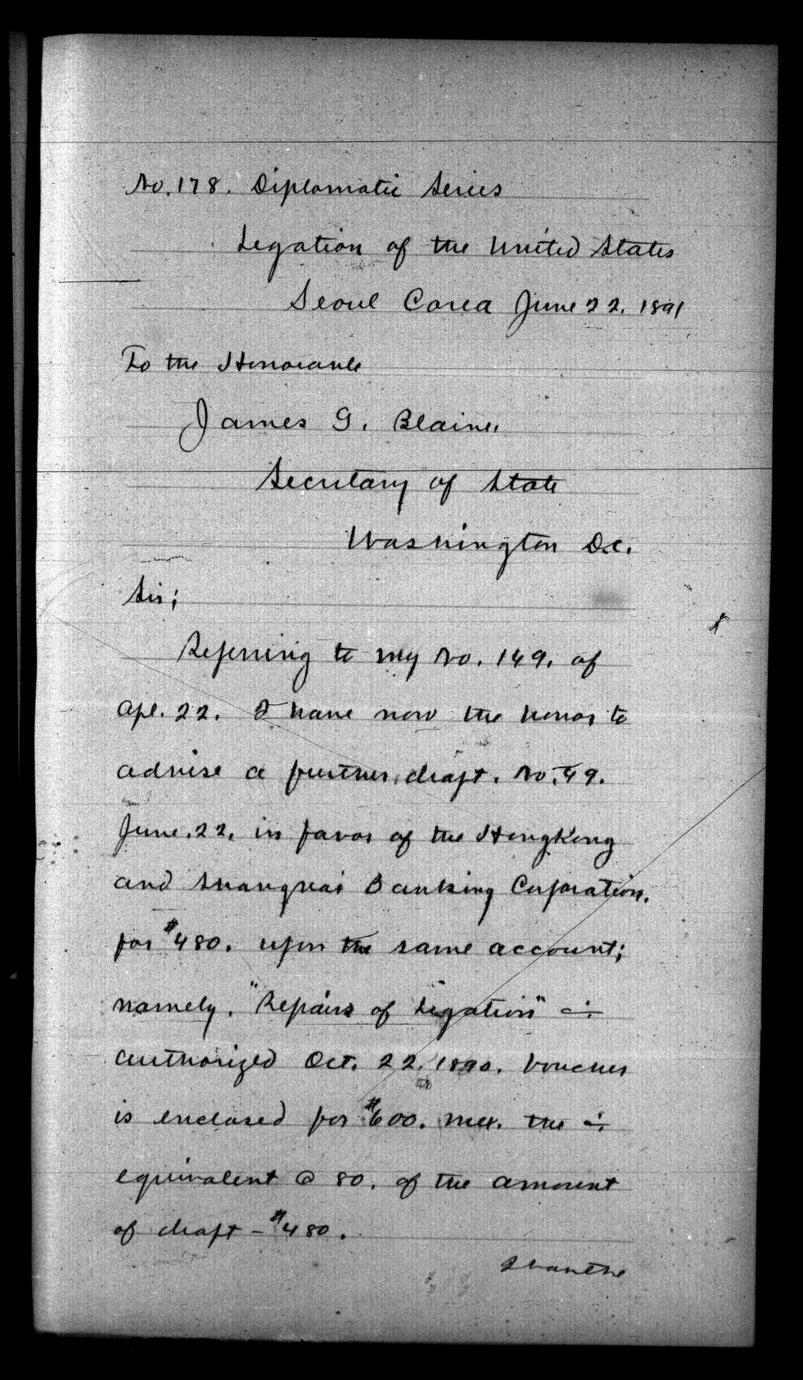 No. 178. Diplomatic Series
Legation of the United States
Seoul Corea June 22. 1891
To the Honorable
James G. Blaine.
Secretary of State
Washington D.C.
Sir;
Referring to my No. 149. of
Apl. 22. I have now the honor to
advise a further draft. No. 49.
June. 22. in favor of the HongKong
and Shanghai Banking Corporation.
for $480. upon the same account;
namely. "Repairs of Legation"
authorized Oct. 22. 1890. Voucher
is enclosed for $600. Mex. the
equivalent @ 80. of the amount
of draft - $480.
I have the